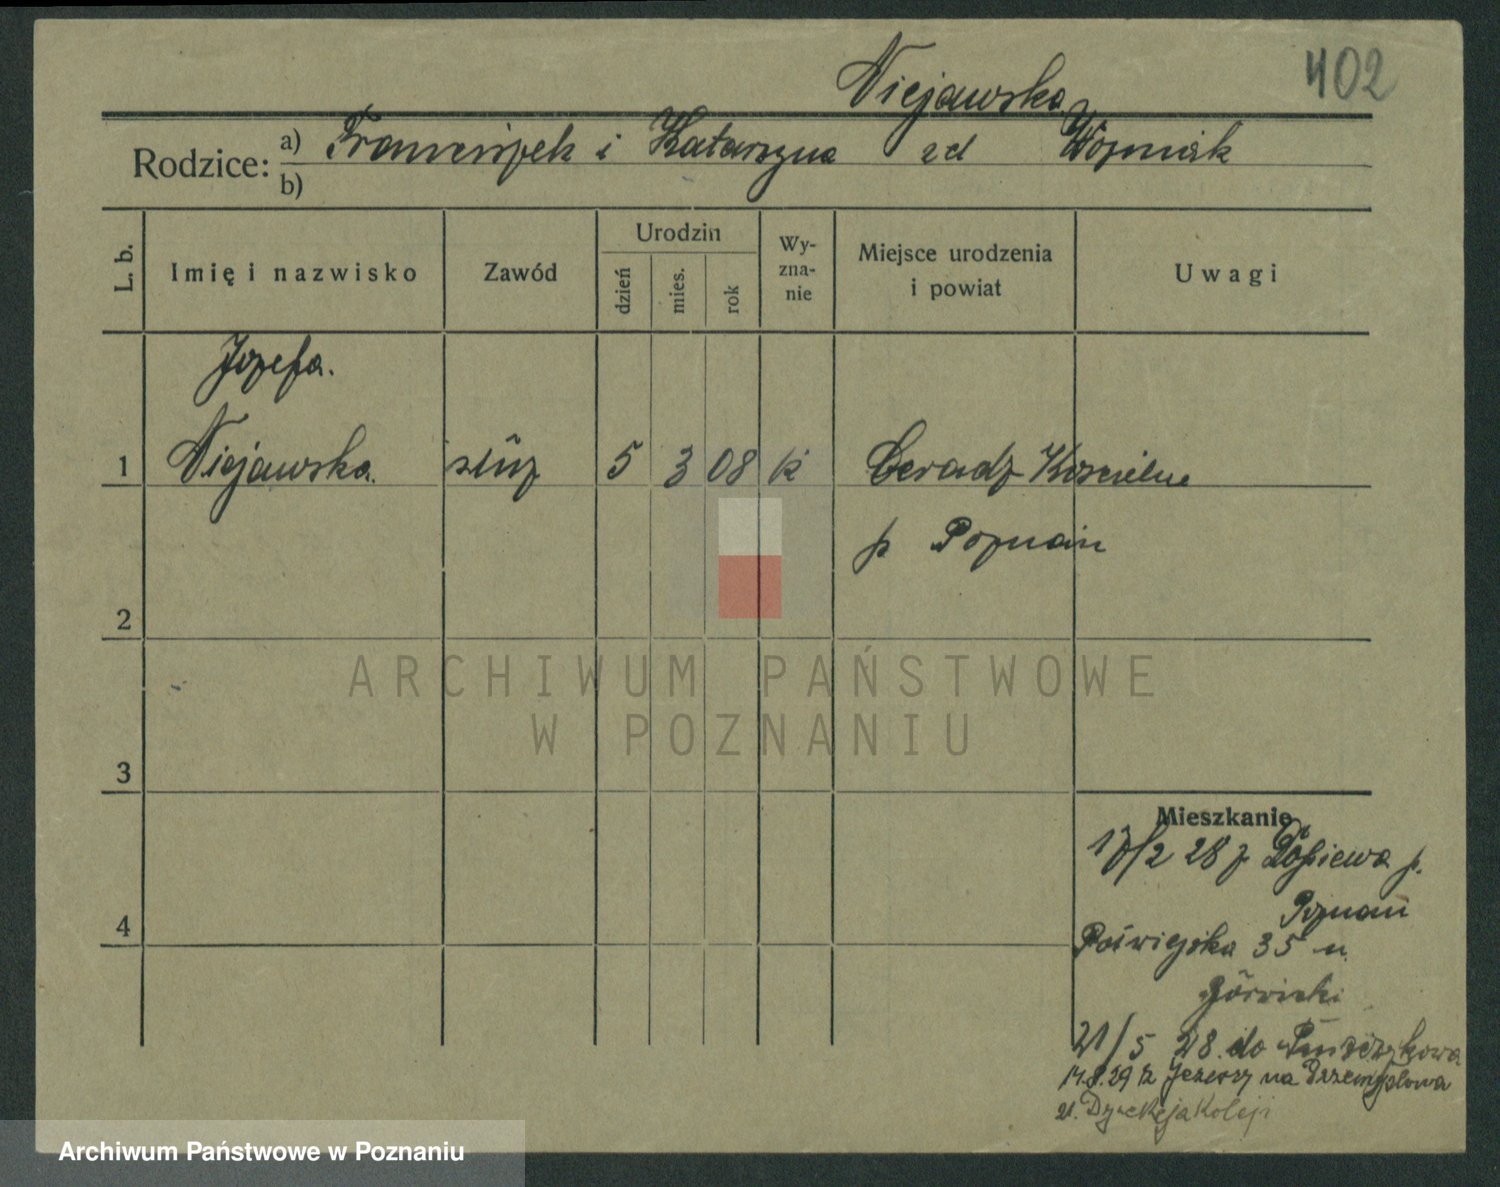 402
Niejawska
Rodzice: a) Franciszek i Katarzyna zd Woźniak
b)
L. b. Imię i nazwisko Zawód Urodzin dzień mies. rok Wyzna-nie Miejsce urodzenia i powiat Uwagi
Jozefa.
1 Niejawska. służ 5 3 08 k Ceradz Kościelne
p Poznań
2
ARCHIWUM PAŃSTWOWE
W POZNANIU
3
Mieszkanie
17/2 28 z Dopiewa p.
Poznań
Poświejska 35 u
21/5 28. do Puszczykowa
14.8.29 z Jeżeory na Przemysłowa
Dyrekcja Koleji
4
Archiwum Państwowe w Poznaniu